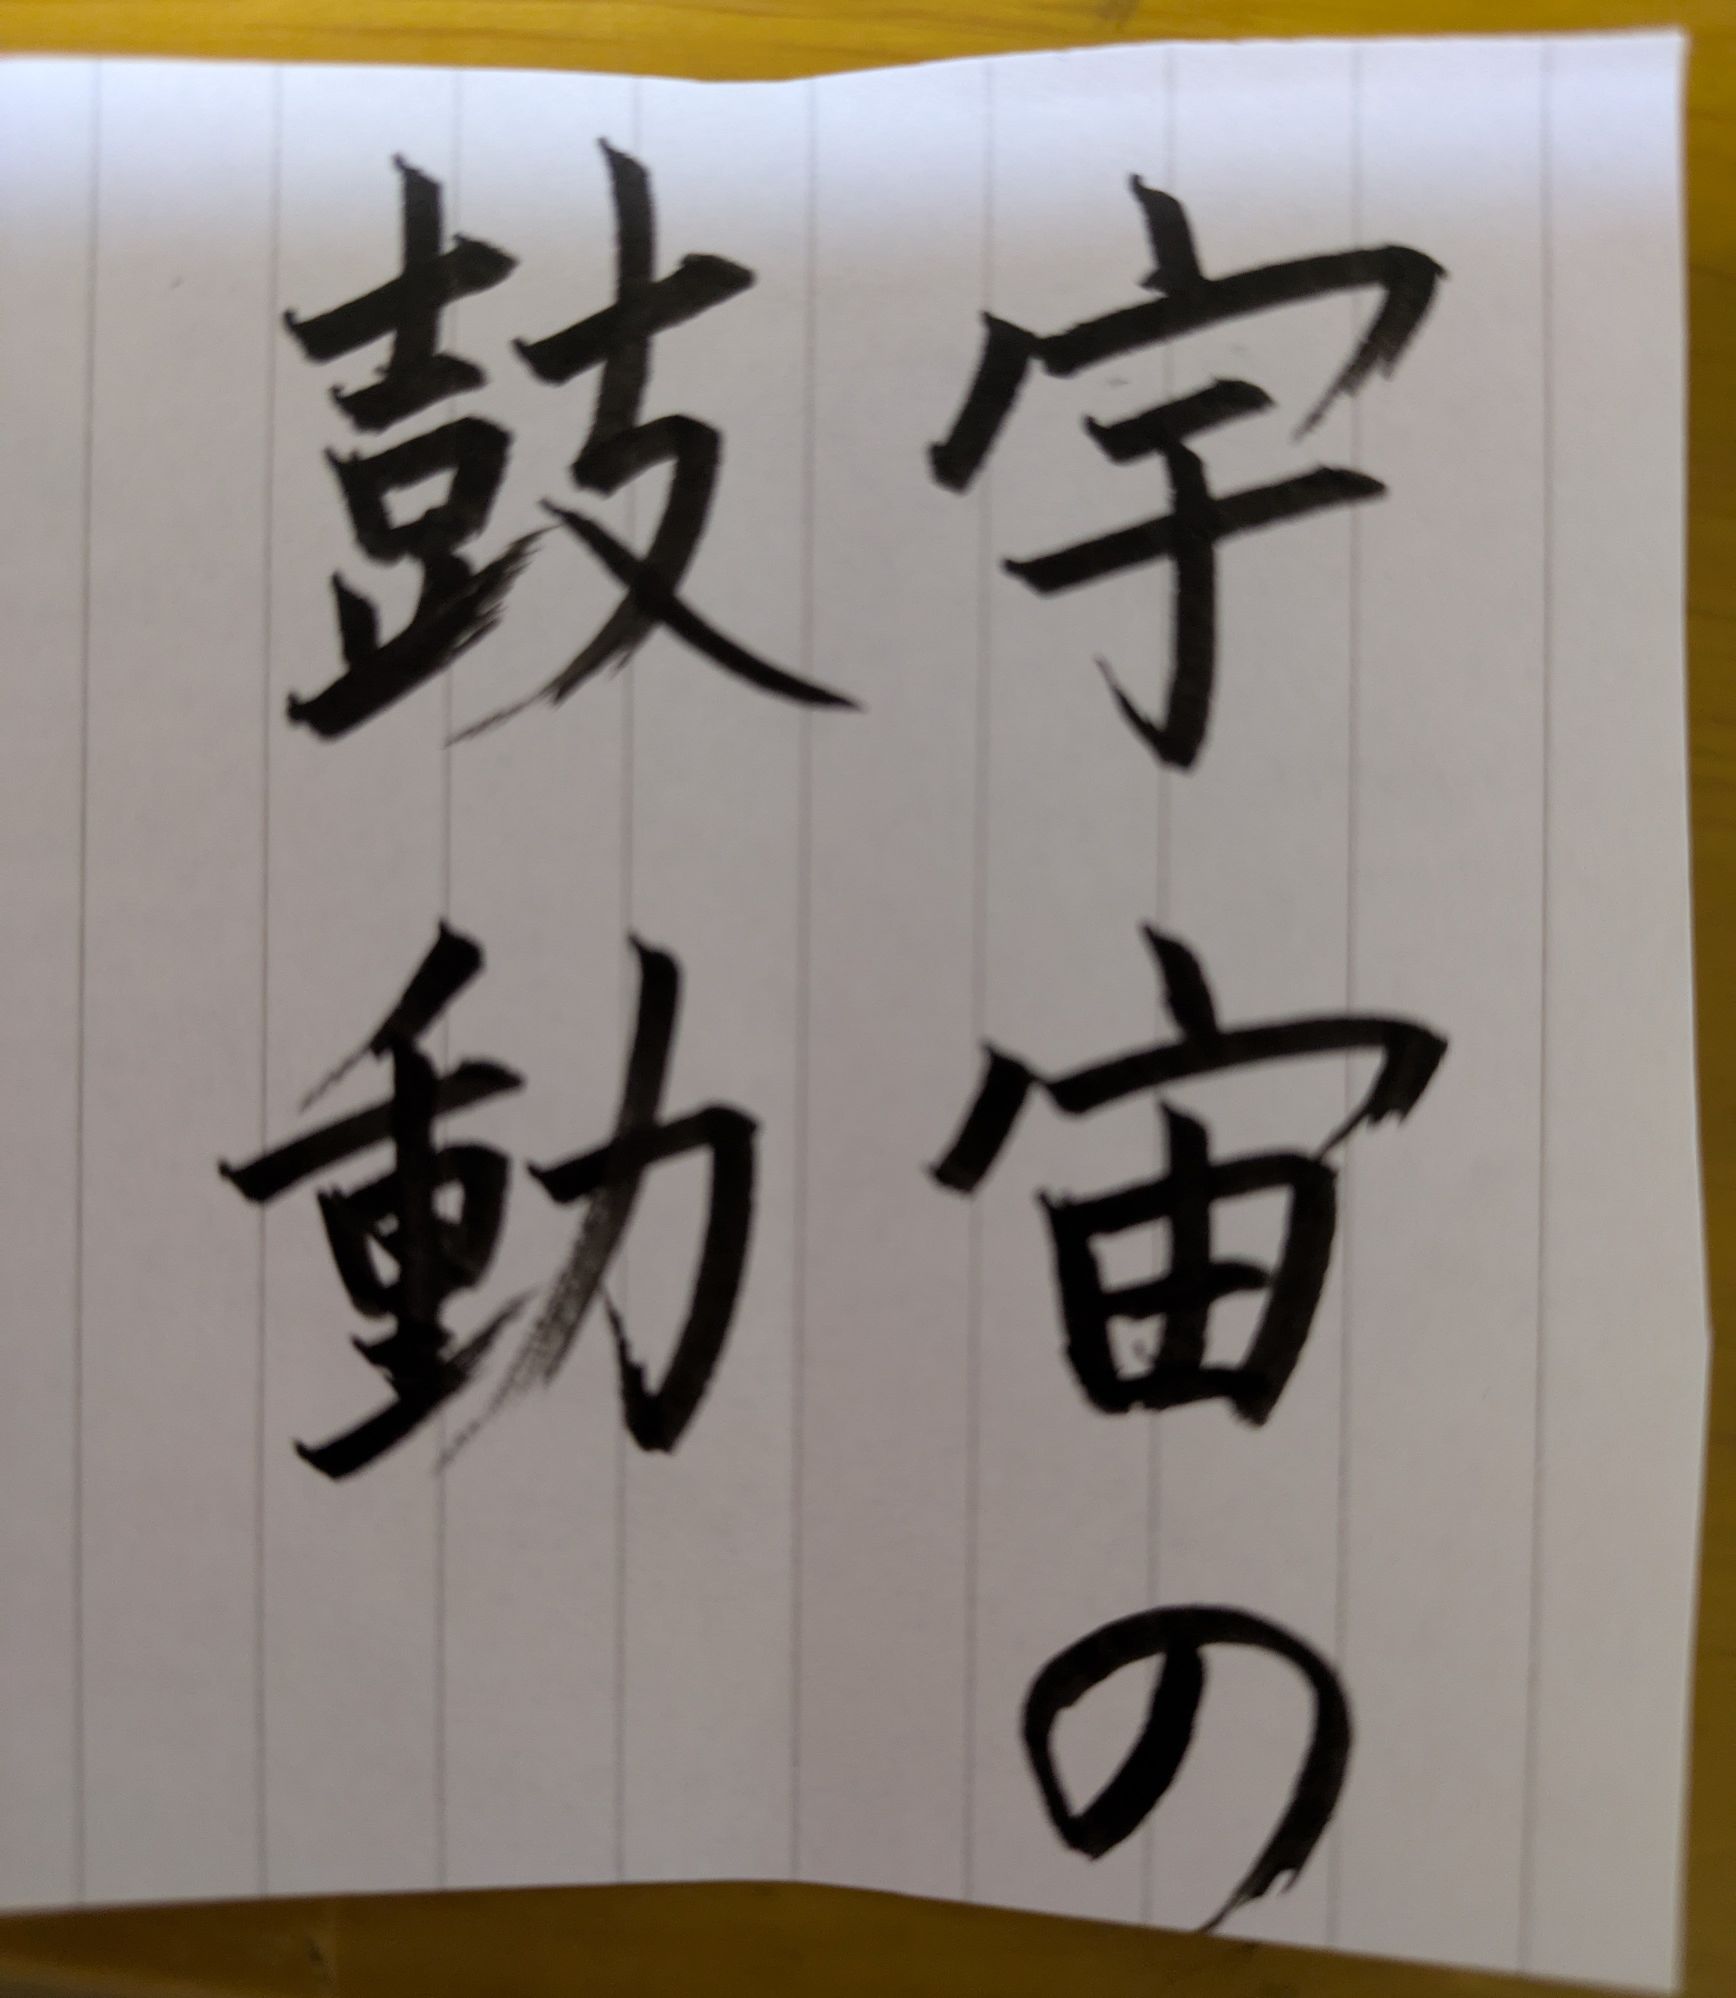 宇宙の
鼓動